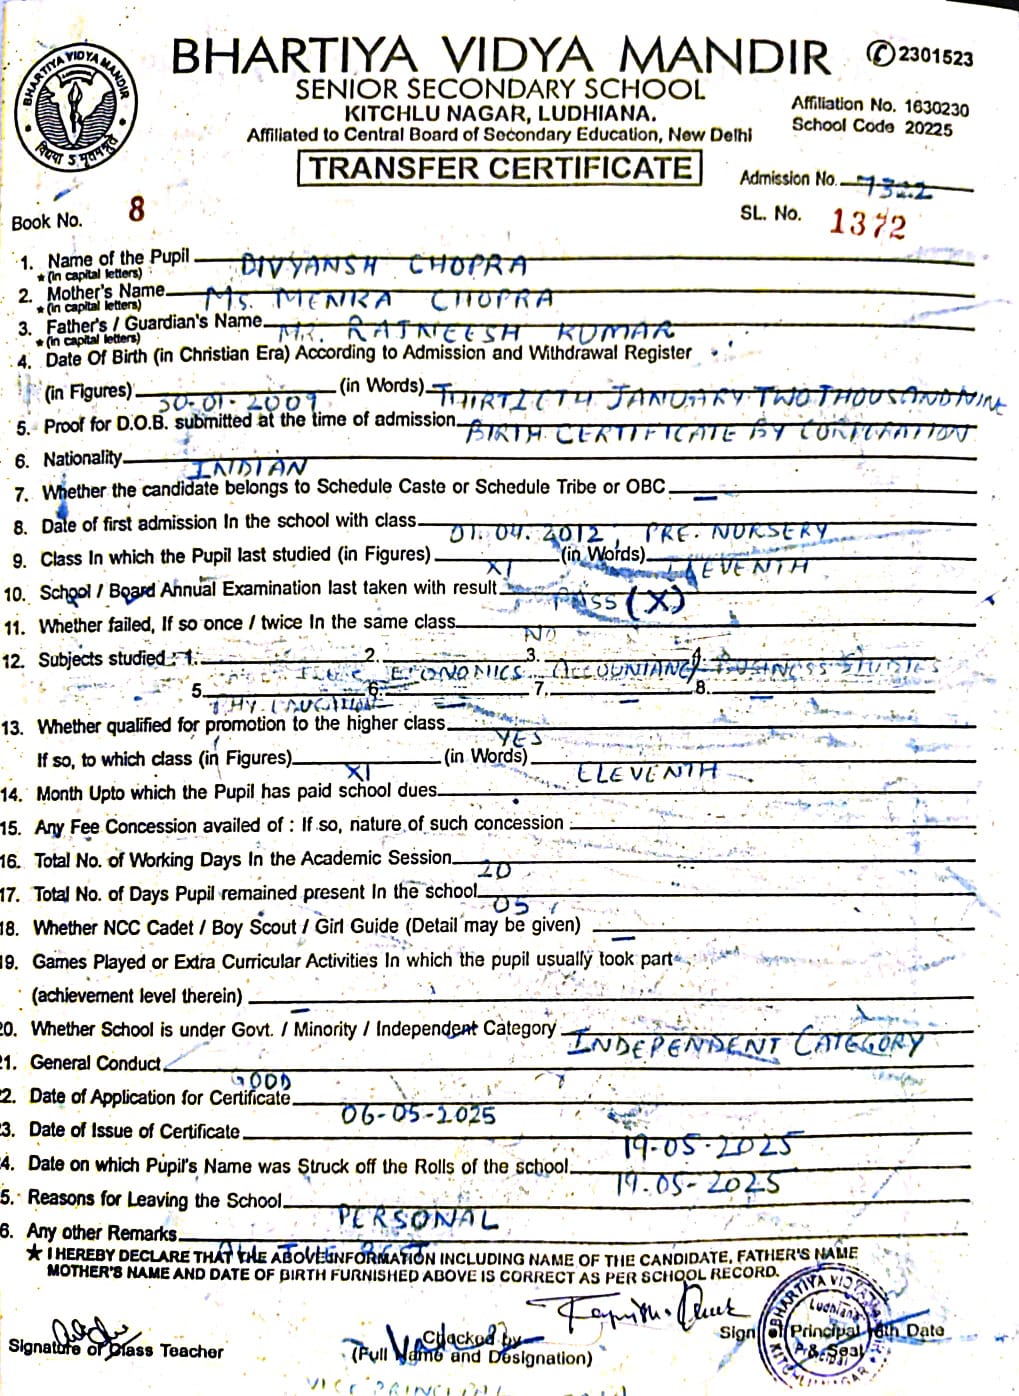 BHARTIYA VIDYA MANDIR
BHARTIYA VIDYA MANDIR ✆2301523
SENIOR SECONDARY SCHOOL
KITCHLU NAGAR, LUDHIANA.
Affiliation No. 1630230
Affiliated to Central Board of Secondary Education, New Delhi
School Code 20225
TRANSFER CERTIFICATE
Admission No. 7322
Book No. 8
SL. No. 1372
1. Name of the Pupil DIVYANSH CHOPRA
★(in capital letters)
2. Mother's Name MS. MENIKA CHOPRA
★(in capital letters)
3. Father's / Guardian's Name MR. RAJNEESH KUMAR
★(in capital letters)
4. Date Of Birth (in Christian Era) According to Admission and Withdrawal Register
(in Figures) 30-01-2009 (in Words) THIRTIETH JANUARY TWO THOUSAND NINE
5. Proof for D.O.B. submitted at the time of admission BIRTH CERTIFICATE BY CORPORATION
6. Nationality INDIAN
7. Whether the candidate belongs to Schedule Caste or Schedule Tribe or OBC —
8. Date of first admission In the school with class 01.04.2012, PRE-NURSERY
9. Class In which the Pupil last studied (in Figures) XI (in Words) ELEVENTH
10. School / Board Annual Examination last taken with result PASS (X)
11. Whether failed, If so once / twice In the same class NO
12. Subjects studied : 1. 2. ECONOMICS 3. ACCOUNTANCY 4. BUSINESS STUDIES
5. PHY. EDUCATION 6. — 7. — 8. —
13. Whether qualified for promotion to the higher class YES
If so, to which class (in Figures) XI (in Words) ELEVENTH
14. Month Upto which the Pupil has paid school dues
15. Any Fee Concession availed of : If so, nature of such concession
16. Total No. of Working Days In the Academic Session 20
17. Total No. of Days Pupil remained present In the school 05
18. Whether NCC Cadet / Boy Scout / Girl Guide (Detail may be given) —
19. Games Played or Extra Curricular Activities In which the pupil usually took part
(achievement level therein) —
20. Whether School is under Govt. / Minority / Independent Category INDEPENDENT CATEGORY
1. General Conduct GOOD
2. Date of Application for Certificate 06-05-2025
3. Date of Issue of Certificate 19-05-2025
4. Date on which Pupil's Name was Struck off the Rolls of the school 19-05-2025
5. Reasons for Leaving the School PERSONAL
6. Any other Remarks
★ I HEREBY DECLARE THAT THE ABOVE INFORMATION INCLUDING NAME OF THE CANDIDATE, FATHER'S NAME
MOTHER'S NAME AND DATE OF BIRTH FURNISHED ABOVE IS CORRECT AS PER SCHOOL RECORD.
BHARTIYA VIDYA
Ludhiana
Checked by
Sign of Principal with Date
Signature of Class Teacher
(Full Name and Designation)
& Seal
Principal
KITCHLU NAGAR
VICE PRINCIPAL